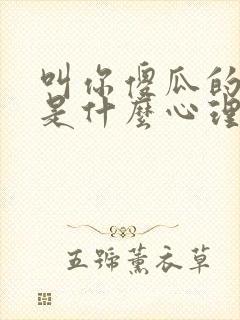 叫你傻瓜的
是什麼心理
五號薰衣草